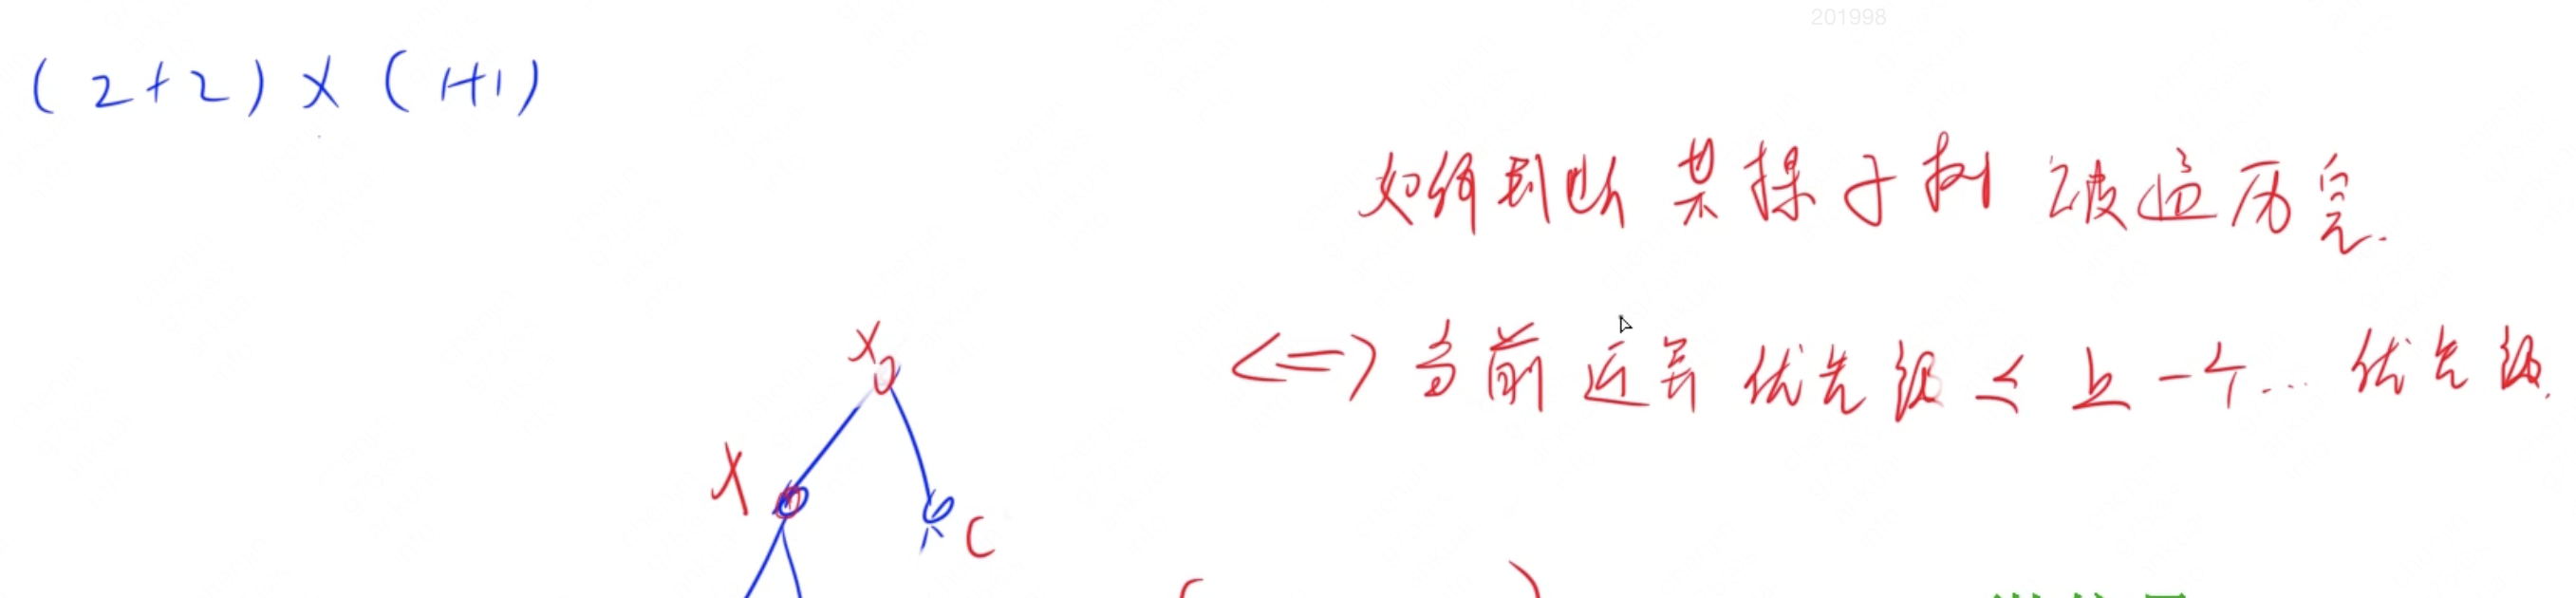 201998
(2+2)×(1+1)
如何判断 某棵子树 被遍历完.
<=> 当前运算优先级 ≤ 上一个... 优先级.
×
×
C
( )